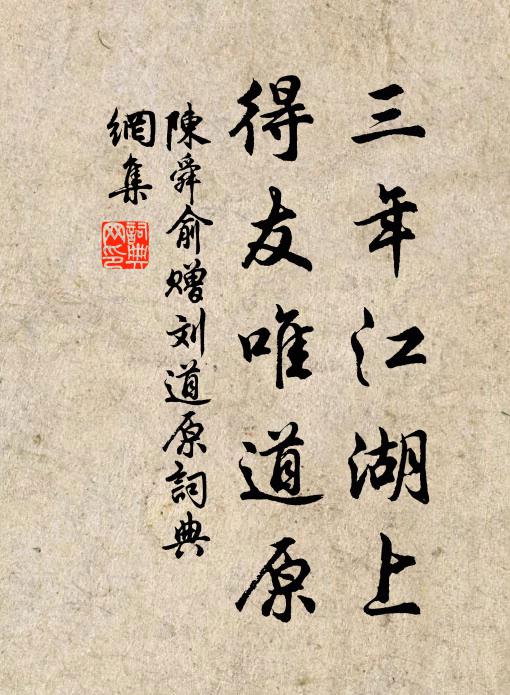 三年江湖上
得友唯道原
陳舜俞赠刘道原詞典
網集
詞典
网印